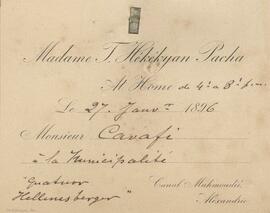 Madame T. Hékékyan Pacha
At Home de 4 à 8 p.m.
Le 27 Janvr 1896
Monsieur Cavafi
à la Municipalité
"Quatuor
Hellmesberger"
Canal Mahmoudié,
Alexandrie